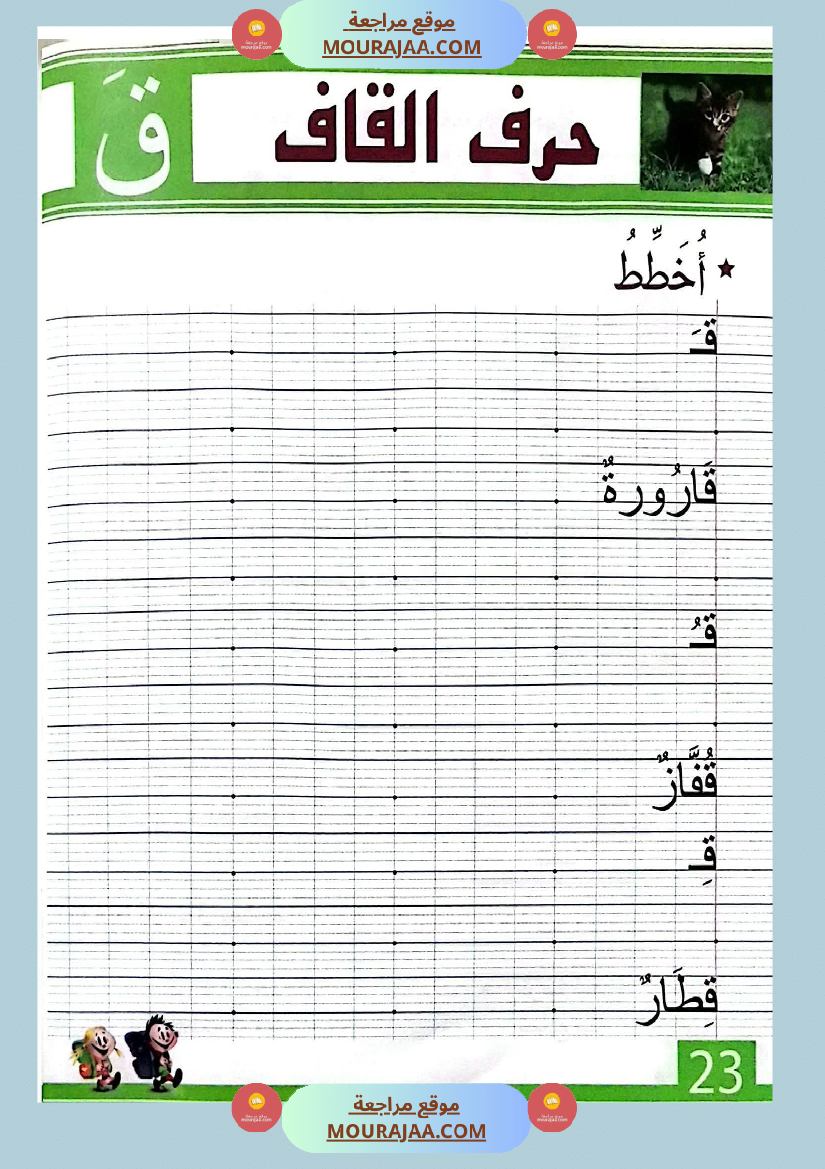 موقع مراجعة
MOURAJAA.COM
حرف القاف
قَ
أُخَطِّطُ
قَـ
قَارُورةٌ
قُـ
قُفَّازٌ
قِـ
قِطَارٌ
23
موقع مراجعة
MOURAJAA.COM